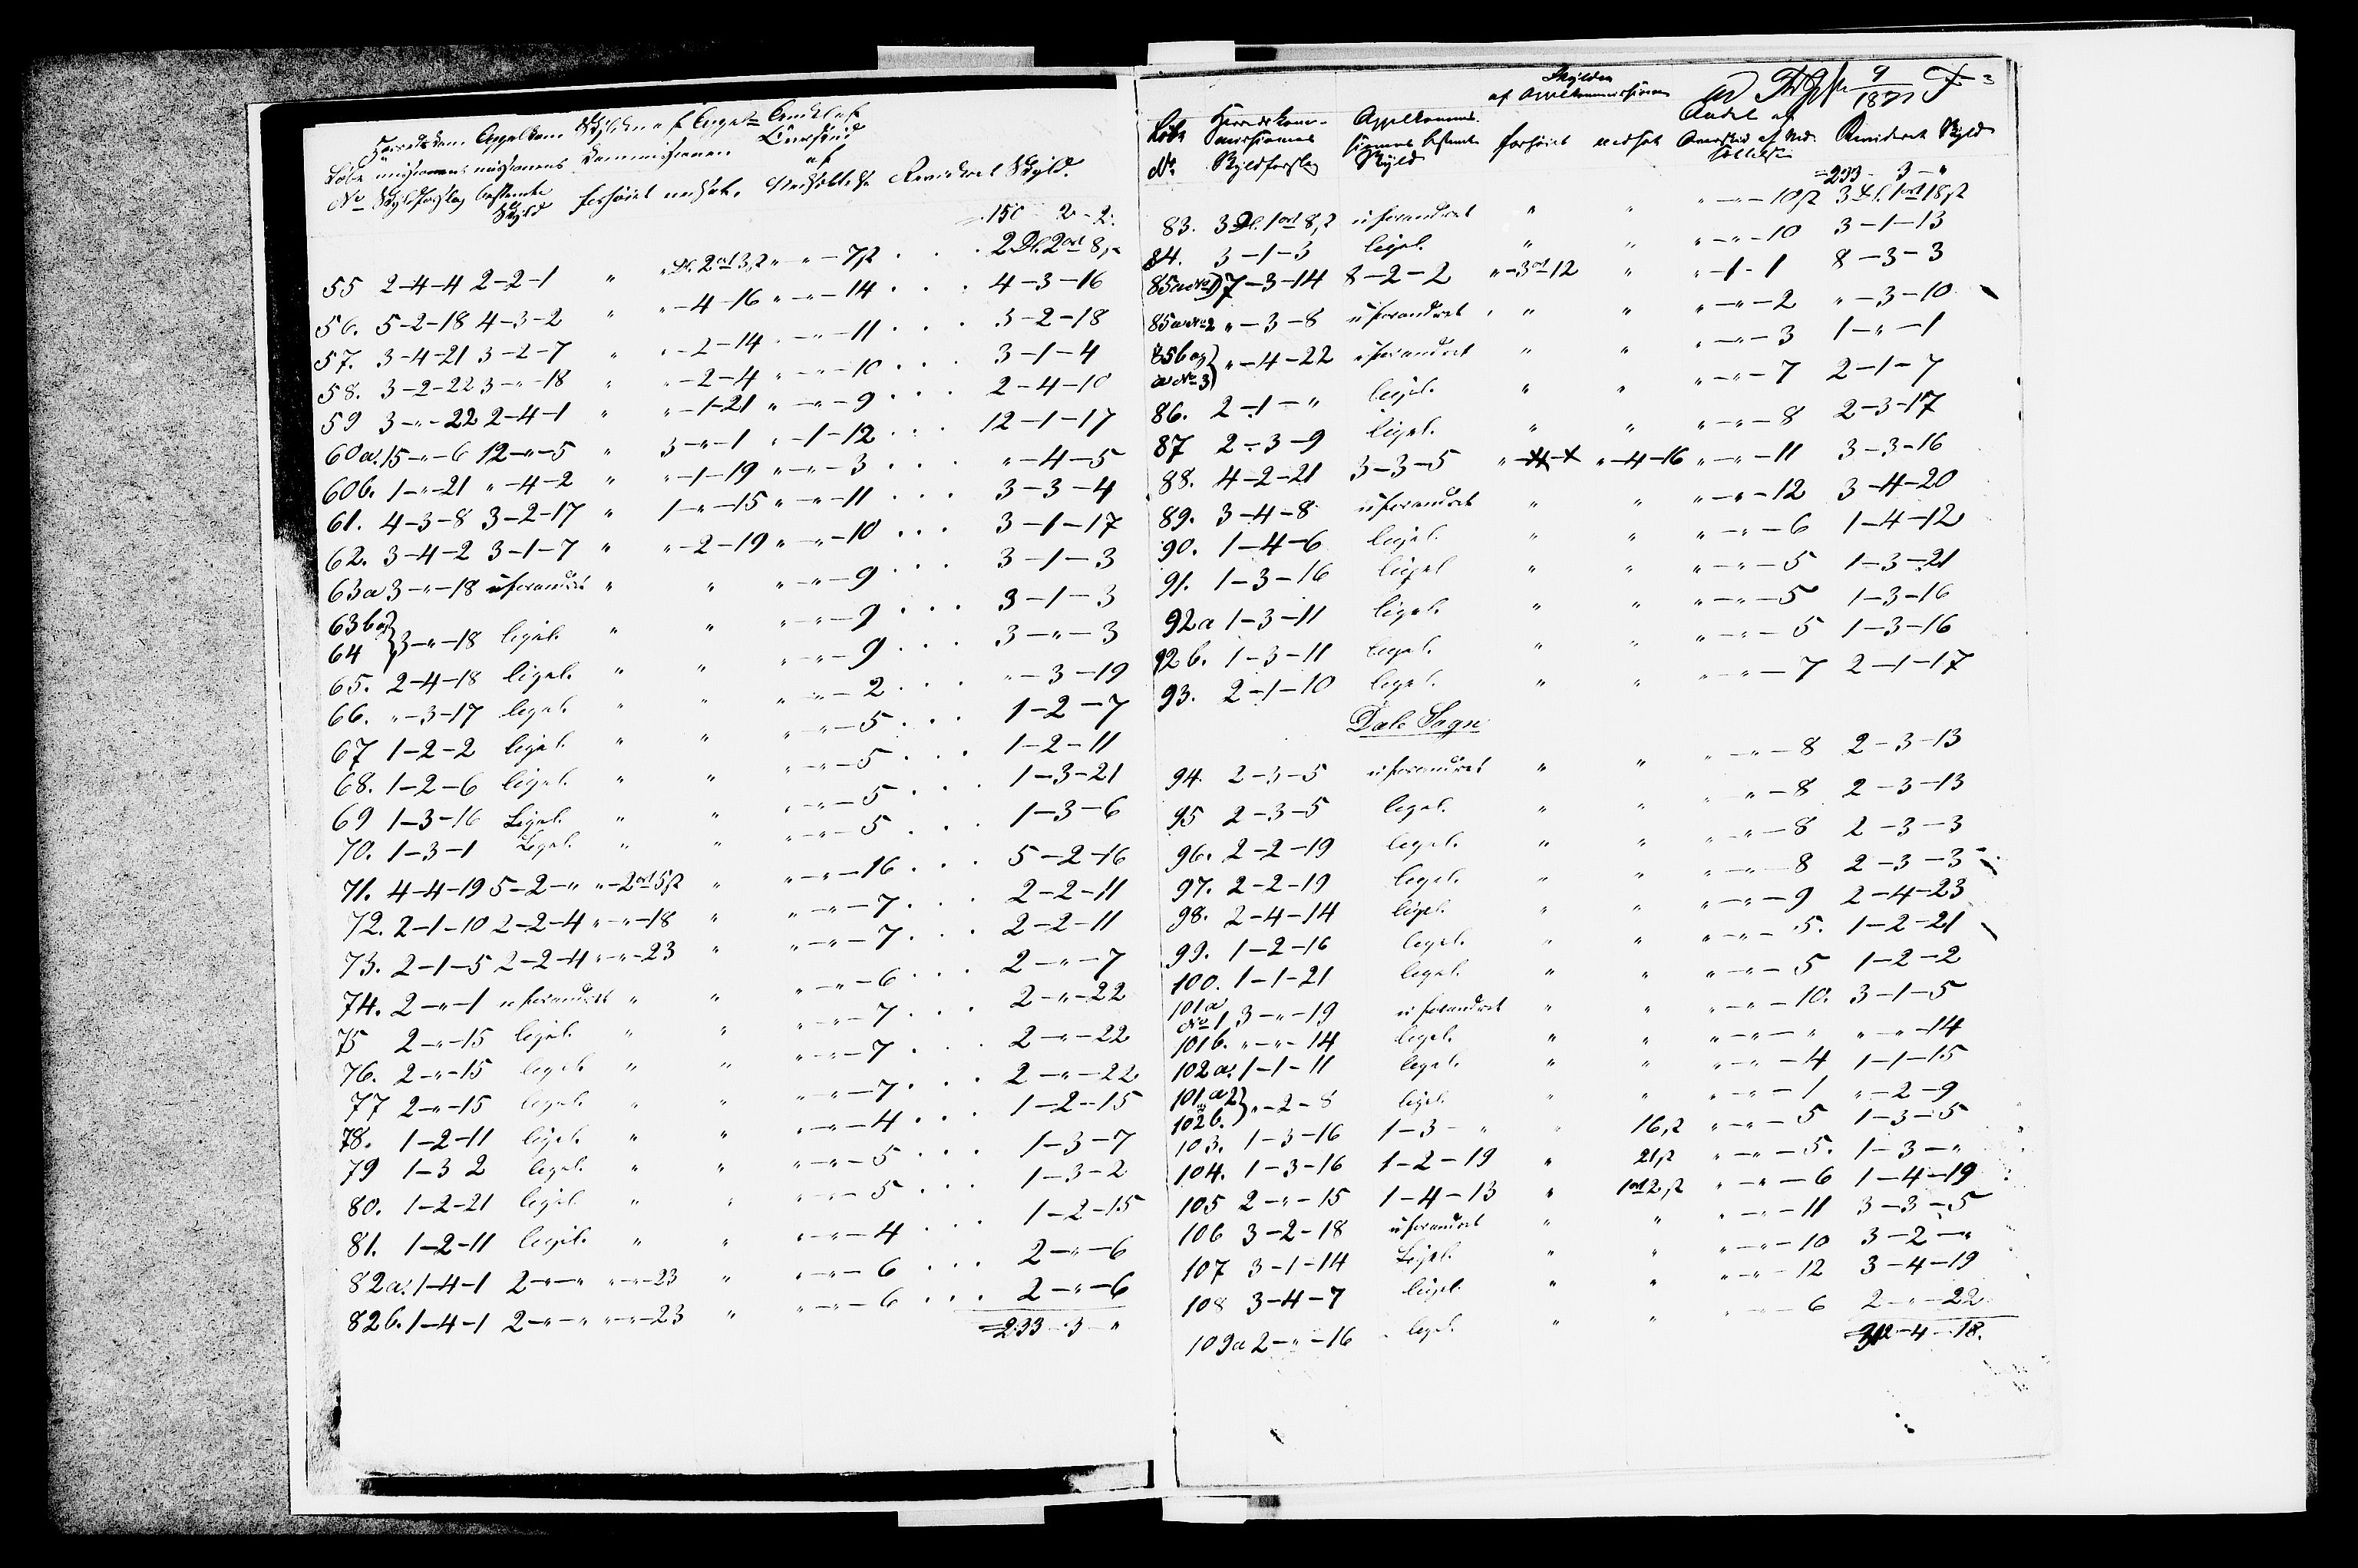 Løbe
No
Herredskommissionens
Skyldforslag
Appelkommissionens
bestemte
Skyld
Skylden af Appelk
Kommissionen
forhøiet nedsat.
Andel af
Overskud
af
Nedsættelse
Revideret Skyld.
150 - 2 - 2.
55 2-4-4 2-2-1 " " Dl. 2 ort 3 β " - " - 7 β . . . 2 Dl. 2 ort 8 β
56. 5-2-18 4-3-2 " " - 4 - 16 " - " - 14 . . . 4-3-16
57. 3-4-21 3-2-7 " " - 2 - 14 " - " - 11 . . . 3-2-18
58. 3-2-22 3-"-18 " " - 2 - 4 " - " - 10 . . . 3-1-4
59 3-"-22 2-4-1 " " - 1 - 21 " - " - 9 . . . 2-4-10
60a. 15-"-6 12-"-5 " 3-"-1 " - 1 - 12 . . . 12-1-17
60b. 1-"-21 "-4-2 " " - 1 - 19 " - " - 3 . . . "-4-5
61. 4-3-8 3-2-17 " 1-"-15 " - " - 11 . . . 3-3-4
62. 3-4-2 3-1-7 " " - 2 - 19 " - " - 10 . . . 3-1-17
63a 3-"-18 uforandret " " " - " - 9 . . . 3-1-3
63b og
64 } 3-"-18 ligel. " " " - " - 9 . . . 3-1-3
65. 2-4-18 ligel. " " " - " - 9 . . . 3-"-3
66. "-3-17 ligel. " " " - " - 2 . . . "-3-19
67 1-2-2 ligel. " " " - " - 5 . . . 1-2-7
68. 1-2-6 ligel. " " " - " - 5 . . . 1-2-11
69 1-3-16 Ligel. " " " - " - 5 . . . 1-3-21
70. 1-3-1 Ligel. " " " - " - 5 . . . 1-3-6
71. 4-4-19 5-2-" " - 2 ort 5 β " " - " - 16 . . . 5-2-16
72. 2-1-10 2-2-4 " - " - 18 " " - " - 7 . . . 2-2-11
73. 2-1-5 2-2-4 " - " - 23 " " - " - 7 . . . 2-2-11
74. 2-"-1 uforandret " " " - " - 6 . . . 2-"-7
75 2-"-15 ligel. " " " - " - 7 . . . 2-"-22
76. 2-"-15 ligel. " " " - " - 7 . . . 2-"-22
77 2-"-15 ligel. " " " - " - 7 . . . 2-"-22
78. 1-2-11 ligel. " " " - " - 4 . . . 1-2-15
79 1-3 2 ligel. " " " - " - 5 . . . 1-3-7
80. 1-2-21 ligel. " " " - " - 5 . . . 1-3-2
81. 1-2-11 ligel. " " " - " - 4 . . . 1-2-15
82a. 1-4-1 2-"-" " - " - 23 " " - " - 6 . . . 2-"-6
82b. 1-4-1 2-"-" " - " - 23 " " - " - 6 . . . 2-"-6
233-3-"
Skylden
af Appelkommissionen
Løbe
No
Herredskommissionens
Skyldforslag
Appelkommissionens bestemte
Skyld
forhøiet
nedsat
Andel af
Overskud af Nedsættelse
Revideret Skyld
233 - 3 - "
83. 3 Dl. 1 ort 8 β uforandret " " " - " - 10 β 3 Dl. 1 ort 18 β
84. 3-1-3 ligel. " " " - " - 10 3-1-13
85a No 1) 7-3-14 8-2-2 " - 3 ort 12 " " - 1 - 1 8-3-3
85a No 2 "-3-8 uforandret " " " - " - 2 "-3-10
85b og
a No 3 } "-4-22 uforandret " " " - " - 3 1-"-1
86. 2-1-" ligel. " " " - " - 7 2-1-7
87 2-3-9 ligel. " " " - " - 8 2-3-17
88. 4-2-21 3-3-5 " "-4-16 " - " - 11 3-3-16
89. 3-4-8 uforandret " " " - " - 12 3-4-20
90. 1-4-6 ligel. " " " - " - 6 1-4-12
91. 1-3-16 ligel " " " - " - 5 1-3-21
92a 1-3-11 ligel. " " " - " - 5 1-3-16
92b. 1-3-11 ligel. " " " - " - 5 1-3-16
93. 2-1-10 ligel. " " " - " - 7 2-1-17
Dale Sogn
94. 2-3-5 uforandret " " " - " - 8 2-3-13
95 2-3-5 ligel. " " " - " - 8 2-3-13
96. 2-2-19 ligel. " " " - " - 8 2-3-3
97. 2-2-19 ligel. " " " - " - 8 2-3-3
98. 2-4-14 ligel. " " " - " - 9 2-4-23
99. 1-2-16 ligel. " " " - " - 5. 1-2-21
100. 1-1-21 ligel. " " " - " - 5 1-2-2
101a
No 1 3-"-19 uforandret " " " - " - 10. 3-1-5
101b. "-"-14 ligel. " " " - " - " "-"-14
102a. 1-1-11 ligel. " " " - " - 4 1-1-15
101 a 2
102b. } "-2-8 ligel. " " " - " - 1 "-2-9
103. 1-3-16 1-3-" " 16 β " - " - 5 1-3-5
104. 1-3-16 1-2-19 " 21 β " - " - 5. 1-3-"
105 2-"-15 1-4-13 " 1 ort 2 β " - " - 6 1-4-19
106 3-2-18 uforandret " " " - " - 11 3-3-5
107 3-1-14 Ligel. " " " - " - 10 3-2-"
108 3-4-7 ligel. " " " - " - 12 3-4-19
109a 2-"-16 ligel. " " " - " - 6 2-"-22
312-4-18.